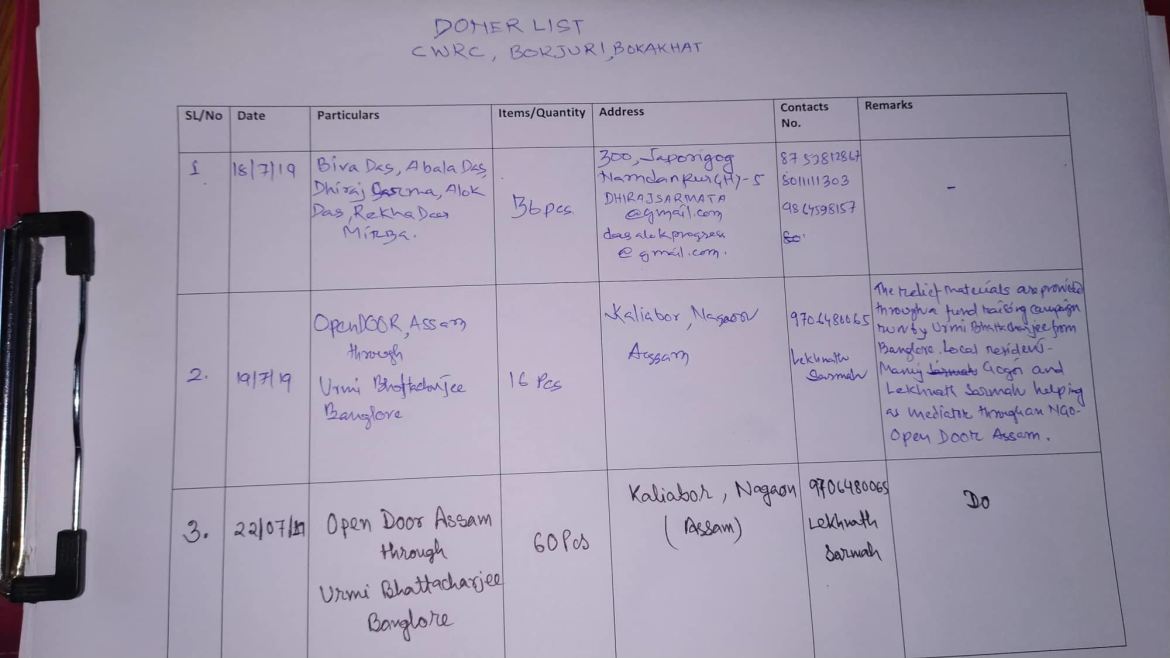 DONER LIST
CWRC, BORJURI, BOKAKHAT
SL/No Date Particulars Items/Quantity Address Contacts No. Remarks
1 18/7/19
Biva Das, Abala Das,
Dhiraj Sarma, Alok
Das, Rekha Das
MIRZA.
36 pcs
300, Japorigog
DHIRAJSARMATA
@gmail.com
@gmail.com.
8011111303
9864598157
-
2. 19/7/19
OpenDOOR, Assam
through
Urmi Bhattacharjee
Banglore
16 Pcs
Kaliabor, Nagaon
Assam
9706480065
Lekhnath
Sarmah
The relief materials are provided
through a fund raising campaign
run by Urmi Bhattacharjee from
Banglore. Local resident-
Manuj Gogoi and
Lekhnath Sarmah helping
as mediator through an NGO-
Open Door Assam.
3. 22/07/19
Open Door Assam
through
Urmi Bhattacharjee
Banglore
60 Pcs
Kaliabor, Nagaon
(Assam)
9706480065
Lekhnath
Sarmah
Do